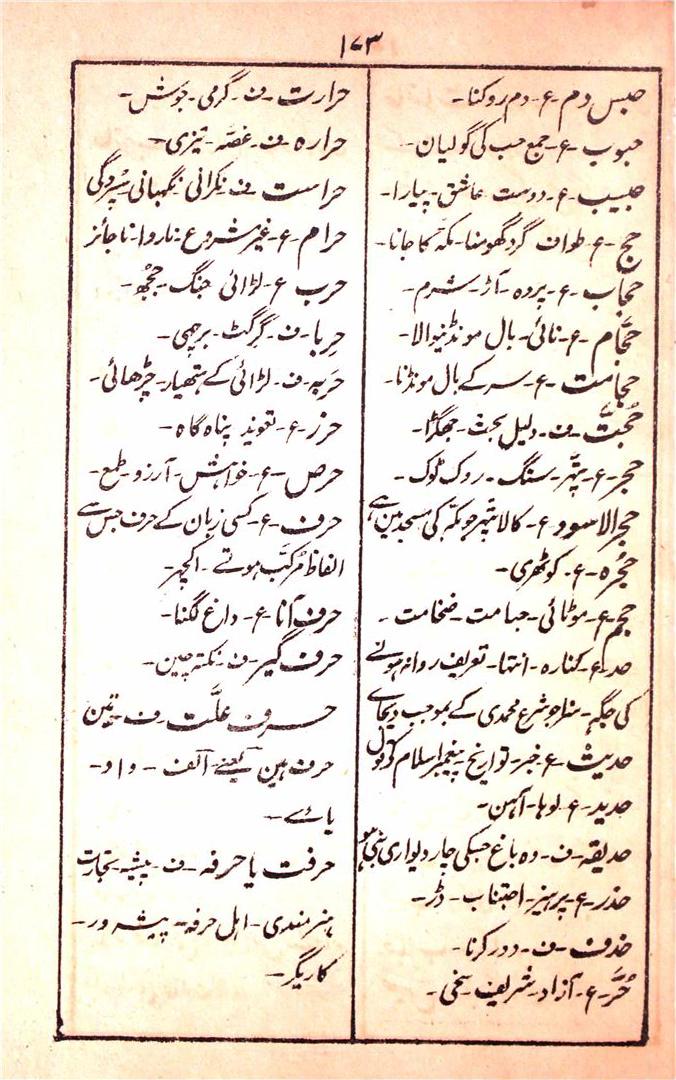 ۱۷۳
حبس دم -ع- دم روکنا-
حبوب -ع- جمع حب کی گولیان-
حبیب -ع- دوست عاشق- پیارا-
حج -ع- طواف گرد گھومنا- مکہ کا جانا-
حجاب -ع- پردہ - آڑ- شرم-
حجّام -ع- نائی- بال مونڈنیوالا-
حجامت -ع- سر کے بال مونڈنا-
حُجّت -ف- دلیل بحث جھگڑا-
حجر -ع- پتّھر- سنگ- روک ٹوک-
حجر الاسود -ع- کالا پتھر جو مکہ کی مسجد مین ہے
حجرہ -ع- کوٹھری-
حجم -ع- موٹائی- جسامت- ضخامت-
حد -ع- کنارہ- انتہا- تعریف روانہ ہونے
کی جگہ- سزا جو شرع محمدی کے بموجب دیجاے
حدیث -ع- خبر- تواریخ- پیغمبر اسلام کے قول
حدید -ع- لوہا- آہن-
حدیقہ -ف- وہ باغ جسکی چار دیواری بنی ہو
حذر -ع- پرہیز- اجتناب- ڈر-
حذف -ف- دور کرنا-
حُرّ -ع- آزاد- شریف سخی-
حرارت -ف- گرمی- جوش-
حرارہ -ف- غصّہ- تیزی-
حراست -ف- نگرانی نگہبانی سپردگی
حرام -ع- غیر مشروع- ناروا- ناجائز
حرب -ع- لڑائی جنگ-
حِربا -ف- گرگٹ- برچھی-
حَربہ -ف- لڑائی کے ہتھیار- چڑھائی-
حرز -ع- تعویذ پناہ گاہ-
حرص -ع- خواہش- آرزو- طمع-
حرف -ع- کسی زبان کے حرف جس سے
الفاظ مُرکّب ہوتے- اکچھر-
حرف آنا -ع- داغ لگنا-
حرف گیر -ف- نکتہ چین-
حروف علّت -ف- تین
حرف ہین یعنے- الف- واو-
یاے-
حرفت یا حرفہ -ف- پیشہ- تجارت
ہنرمندی- اہل حرفہ- پیشہ ور-
کاریگر-